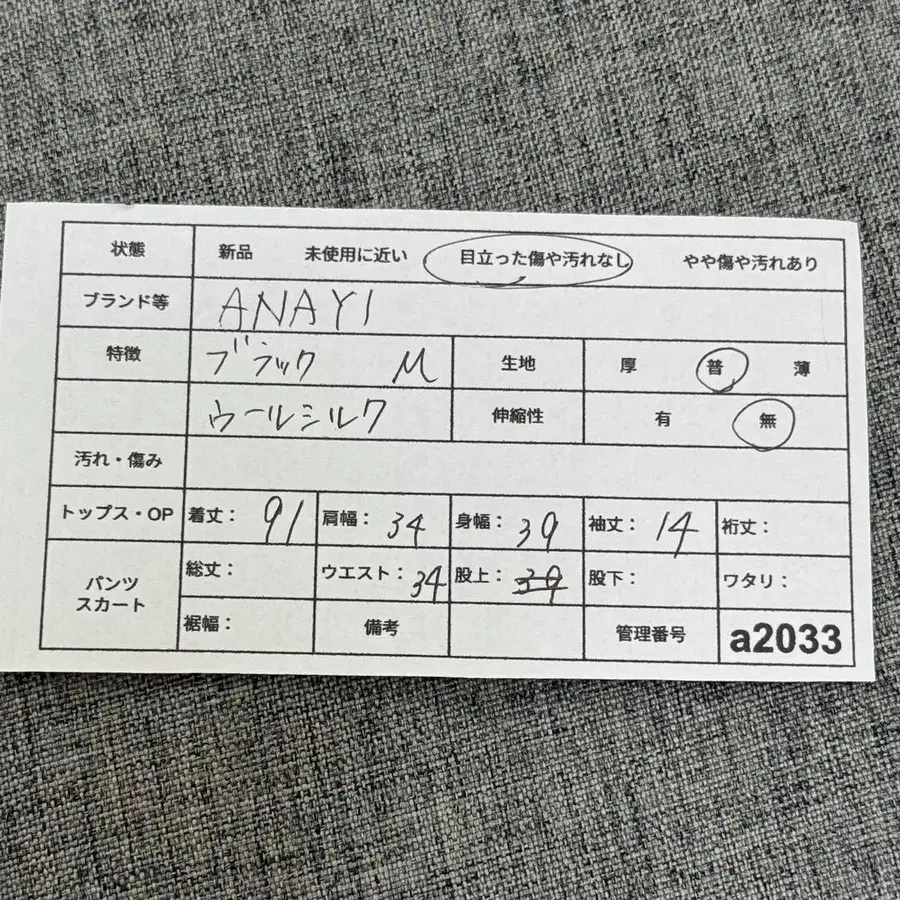 状態 新品 未使用に近い 目立った傷や汚れなし やや傷や汚れあり
ブランド等 ANAYI
特徴 ブラック M 生地 厚 普 薄
ウールシルク 伸縮性 有 無
汚れ・傷み
トップス・OP 着丈： 91 肩幅： 34 身幅： 39 袖丈： 14 裄丈：
パンツ スカート 総丈： ウエスト： 34 股上： 39 股下： ワタリ：
裾幅： 備考 管理番号 a2033